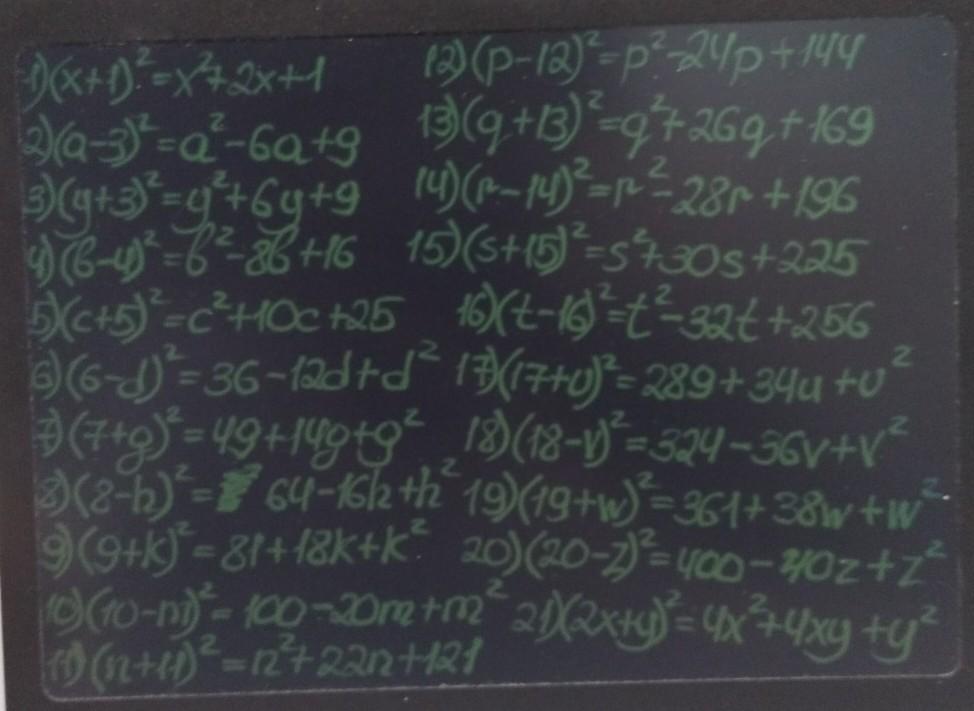 1)(x+1)²=x²+2x+1
2)(a-3)²=a²-6a+9
3)(y+3)²=y²+6y+9
4)(b-4)²=b²-8b+16
5)(c+5)²=c²+10c+25
6)(6-d)²=36-12d+d²
7)(7+g)²=49+14g+g²
8)(8-h)²= 64-16h+h²
9)(9+k)²=81+18k+k²
10)(10-m)²=100-20m+m²
11)(n+11)²=n²+22n+121
12)(p-12)²=p²-24p+144
13)(q+13)²=q²+26q+169
14)(r-14)²=r²-28r+196
15)(s+15)²=s²+30s+225
16)(t-16)²=t²-32t+256
17)(17+u)²=289+34u+u²
18)(18-v)²=324-36v+v²
19)(19+w)²=361+38w+w²
20)(20-z)²=400-40z+z²
21)(2x+y)²=4x²+4xy+y²